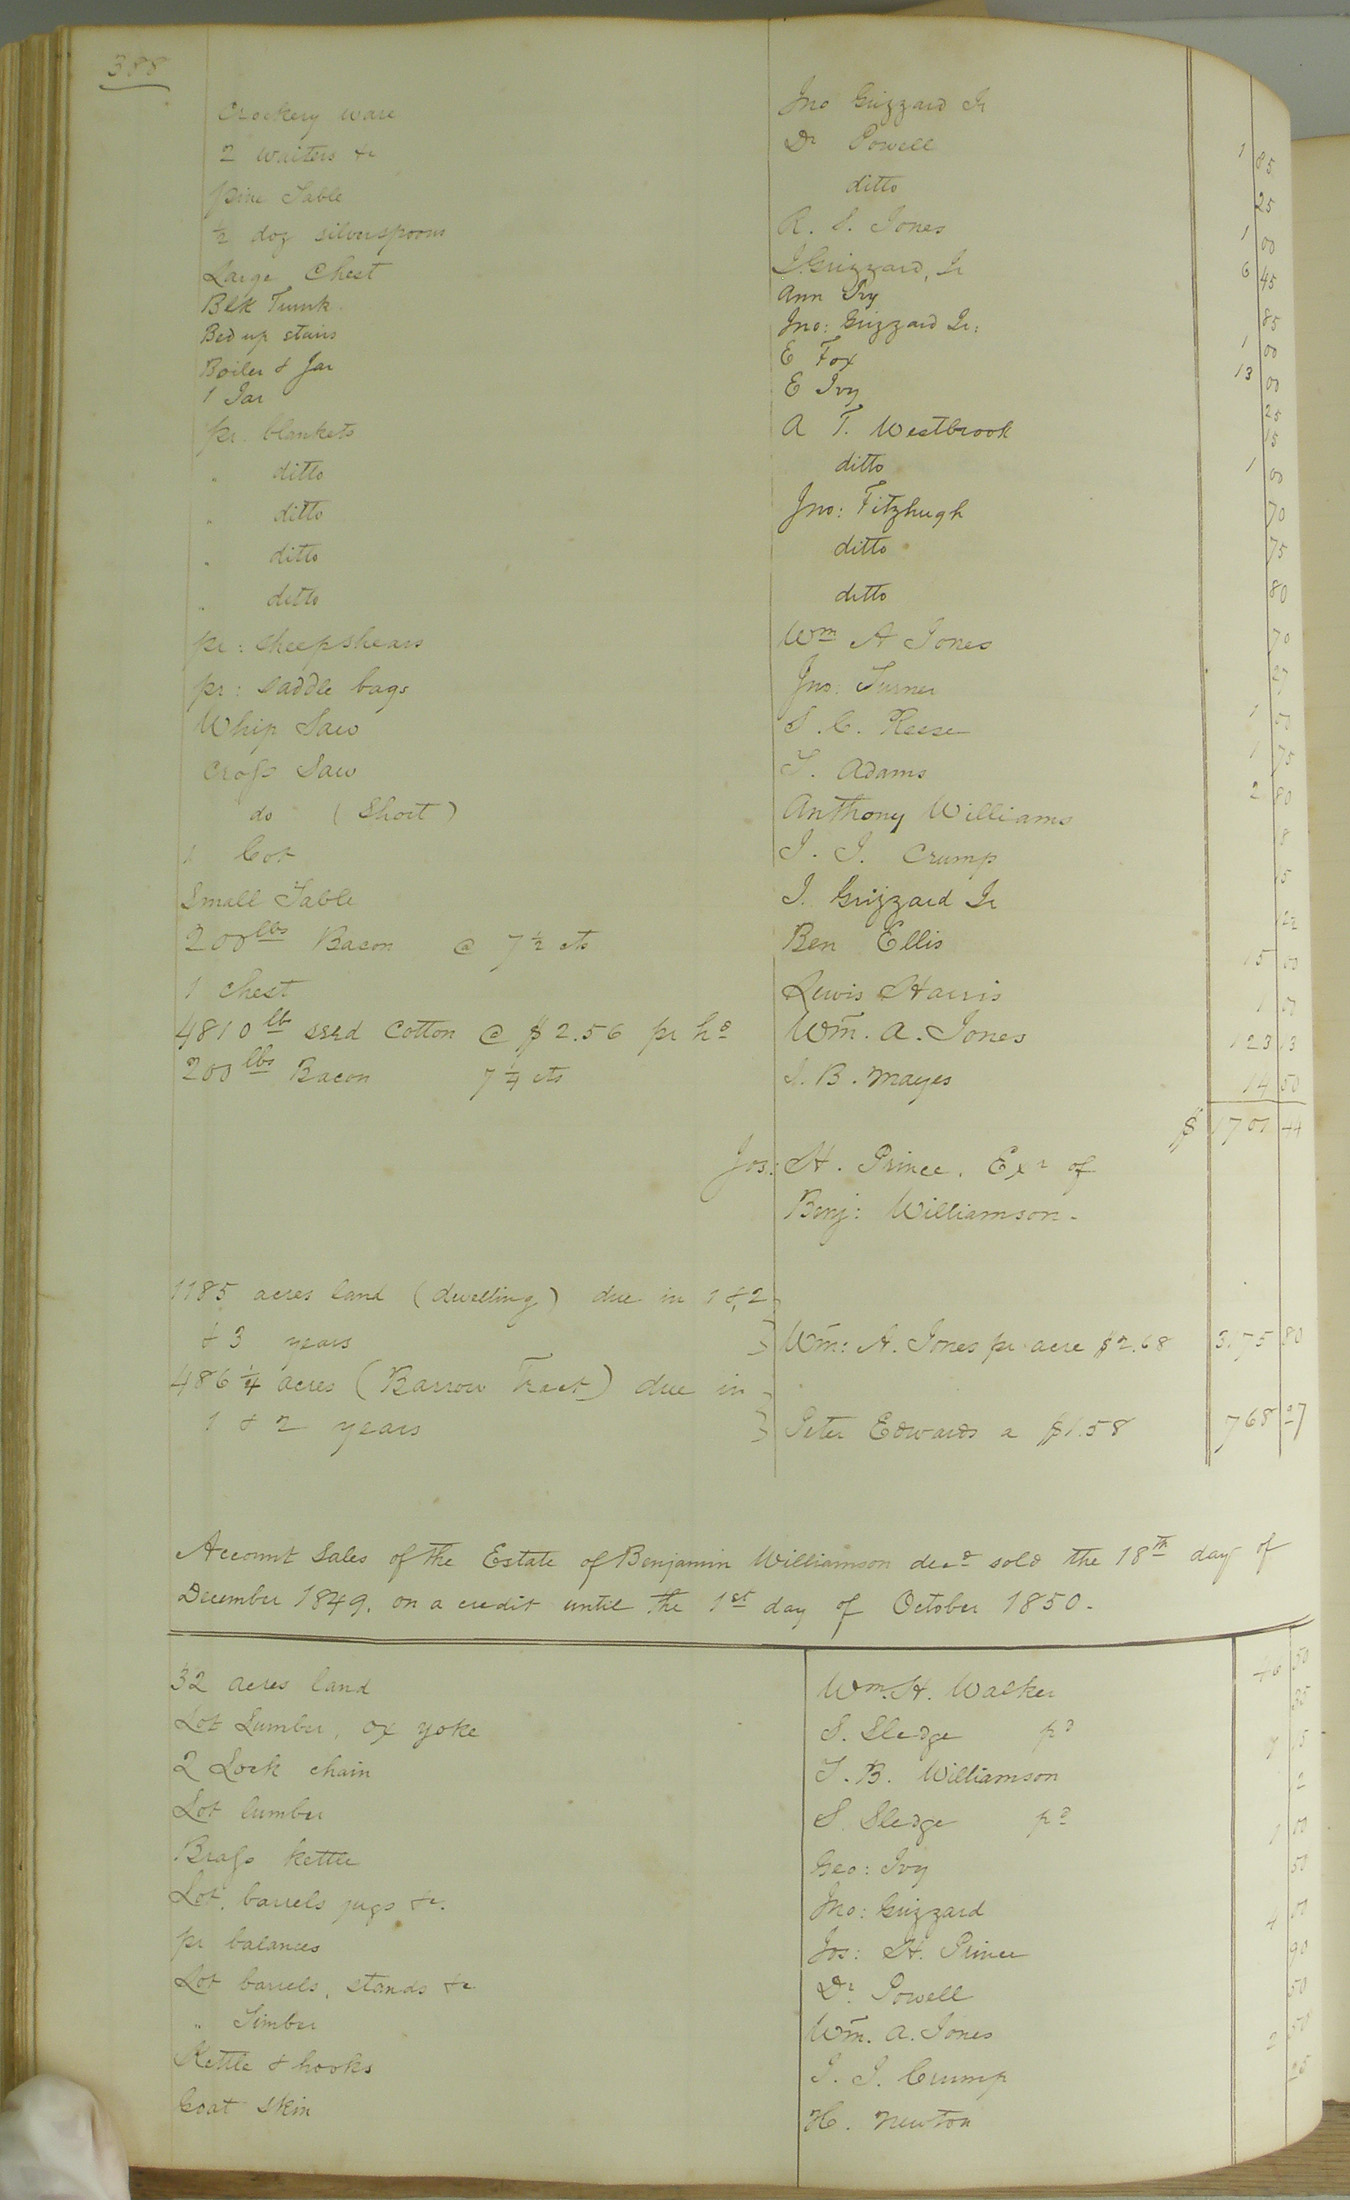 388
Crockery ware Jno Grizzard Jr 1 85
2 Waiters &c Dr Powell 25
pine Table ditto 1 00
½ doz silverspoons R. S. Jones 6 45
Large Chest J. Grizzard, Jr 85
Blk Trunk. Ann Ivy 1 00
Bed up stairs Jno: Grizzard Jr: 13 00
Boiler & Jar E Fox 25
1 Jar E Ivy 15
pr. blankets A T. Westbrook 1 00
" ditto ditto 70
" ditto Jno: Fitzhugh 75
" ditto ditto 80
" ditto ditto 70
pr: sheepshears Wm A Jones
pr: saddle bags Jno. Turner 1 00
Whip Saw S. C. Reese 1 75
Cross Saw T. Adams 2 80
do (Short) Anthony Williams
1 Cot J. J. Crump
Small Table J. Grizzard Jr 12½
200 lbs Bacon @ 7½ cts Ben Ellis 15 00
1 chest Lewis Harris 1 00
4810 lb seed Cotton @ $2.56 pr hd Wm. A. Jones 123 13
200 lbs Bacon 7¼ cts J. B. Mayes 14 50
$ 1701 44
Jos: H. Prince. Exr of
Benj: Williamson.
1185 acres land (dwelling) due in 1 & 2
& 3 years Wm: A. Jones pr acre $2.68 3.175 80
486¼ acres (Barrow Tract) due in
1 & 2 years Peter Edwards a $1.58 768 27
Account Sales of the Estate of Benjamin Williamson decd sold the 18th day of
December 1849, on a credit until the 1st day of October 1850.
32 acres land Wm. H. Walker 50
Lot Lumber, ox yoke S. Sledge pd 35
2 Lock chain T. B. Williamson 15
Lot lumber S. Sledge pd
Brass kettle Geo: Ivy 1 00
Lot. barrels jugs &c. Jno: Grizzard 50
pr balances Jos: H. Prince 4 00
Lot barrels, stands &c Dr. Powell 90
" Timber Wm. A. Jones 50
Kettle & hooks J. J. Crump 2 50
Goat skin H. Newton 25